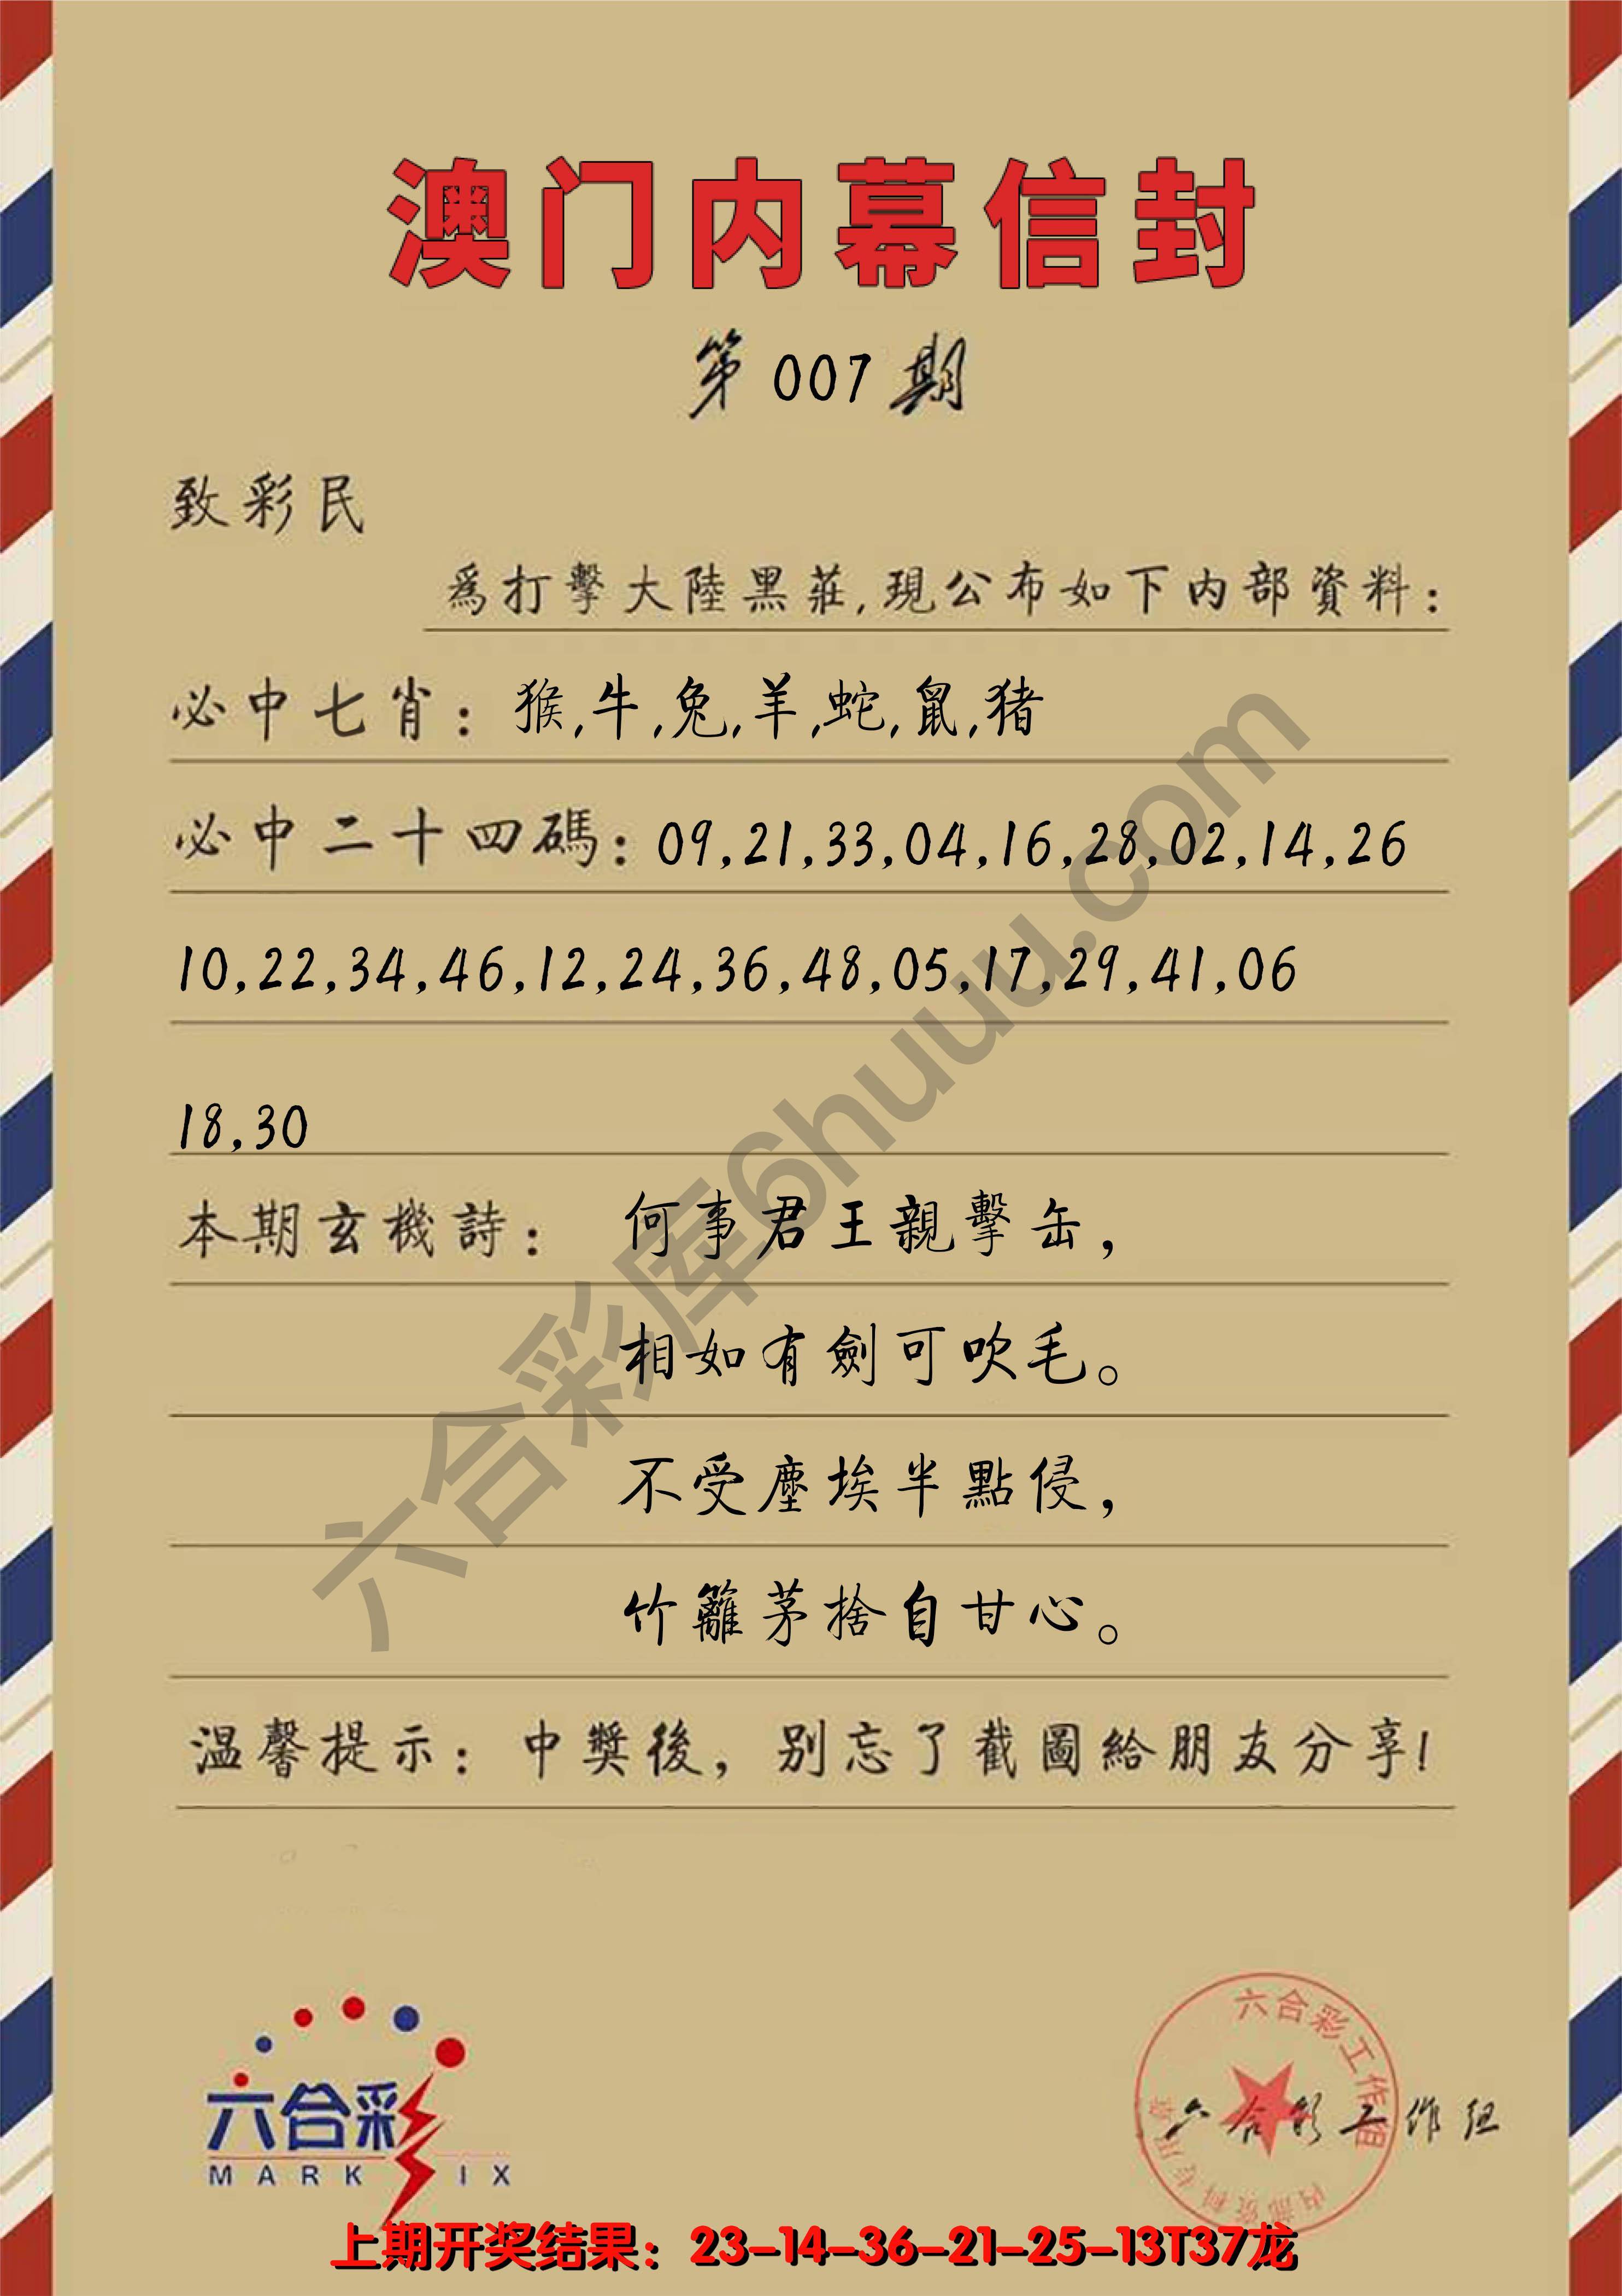 澳门内幕信封
第007期
致彩民
爲打擊大陸黑莊,現公布如下内部資料:
必中七肖: 猴,牛,兔,羊,蛇,鼠,猪
必中二十四碼: 09,21,33,04,16,28,02,14,26
10,22,34,46,12,24,36,48,05,17,29,41,06
18,30
本期玄機詩: 何事君王親擊缶,
相如有劍可吹毛。
不受塵埃半點侵,
竹籬茅捨自甘心。
温馨提示: 中獎後, 别忘了截圖給朋友分享!
六合彩库6huuu.com
六合彩
MARK IX
六合彩工作组
内部资料专用章
六合彩工作组
上期开奖结果: 23-14-36-21-25-13T37龙